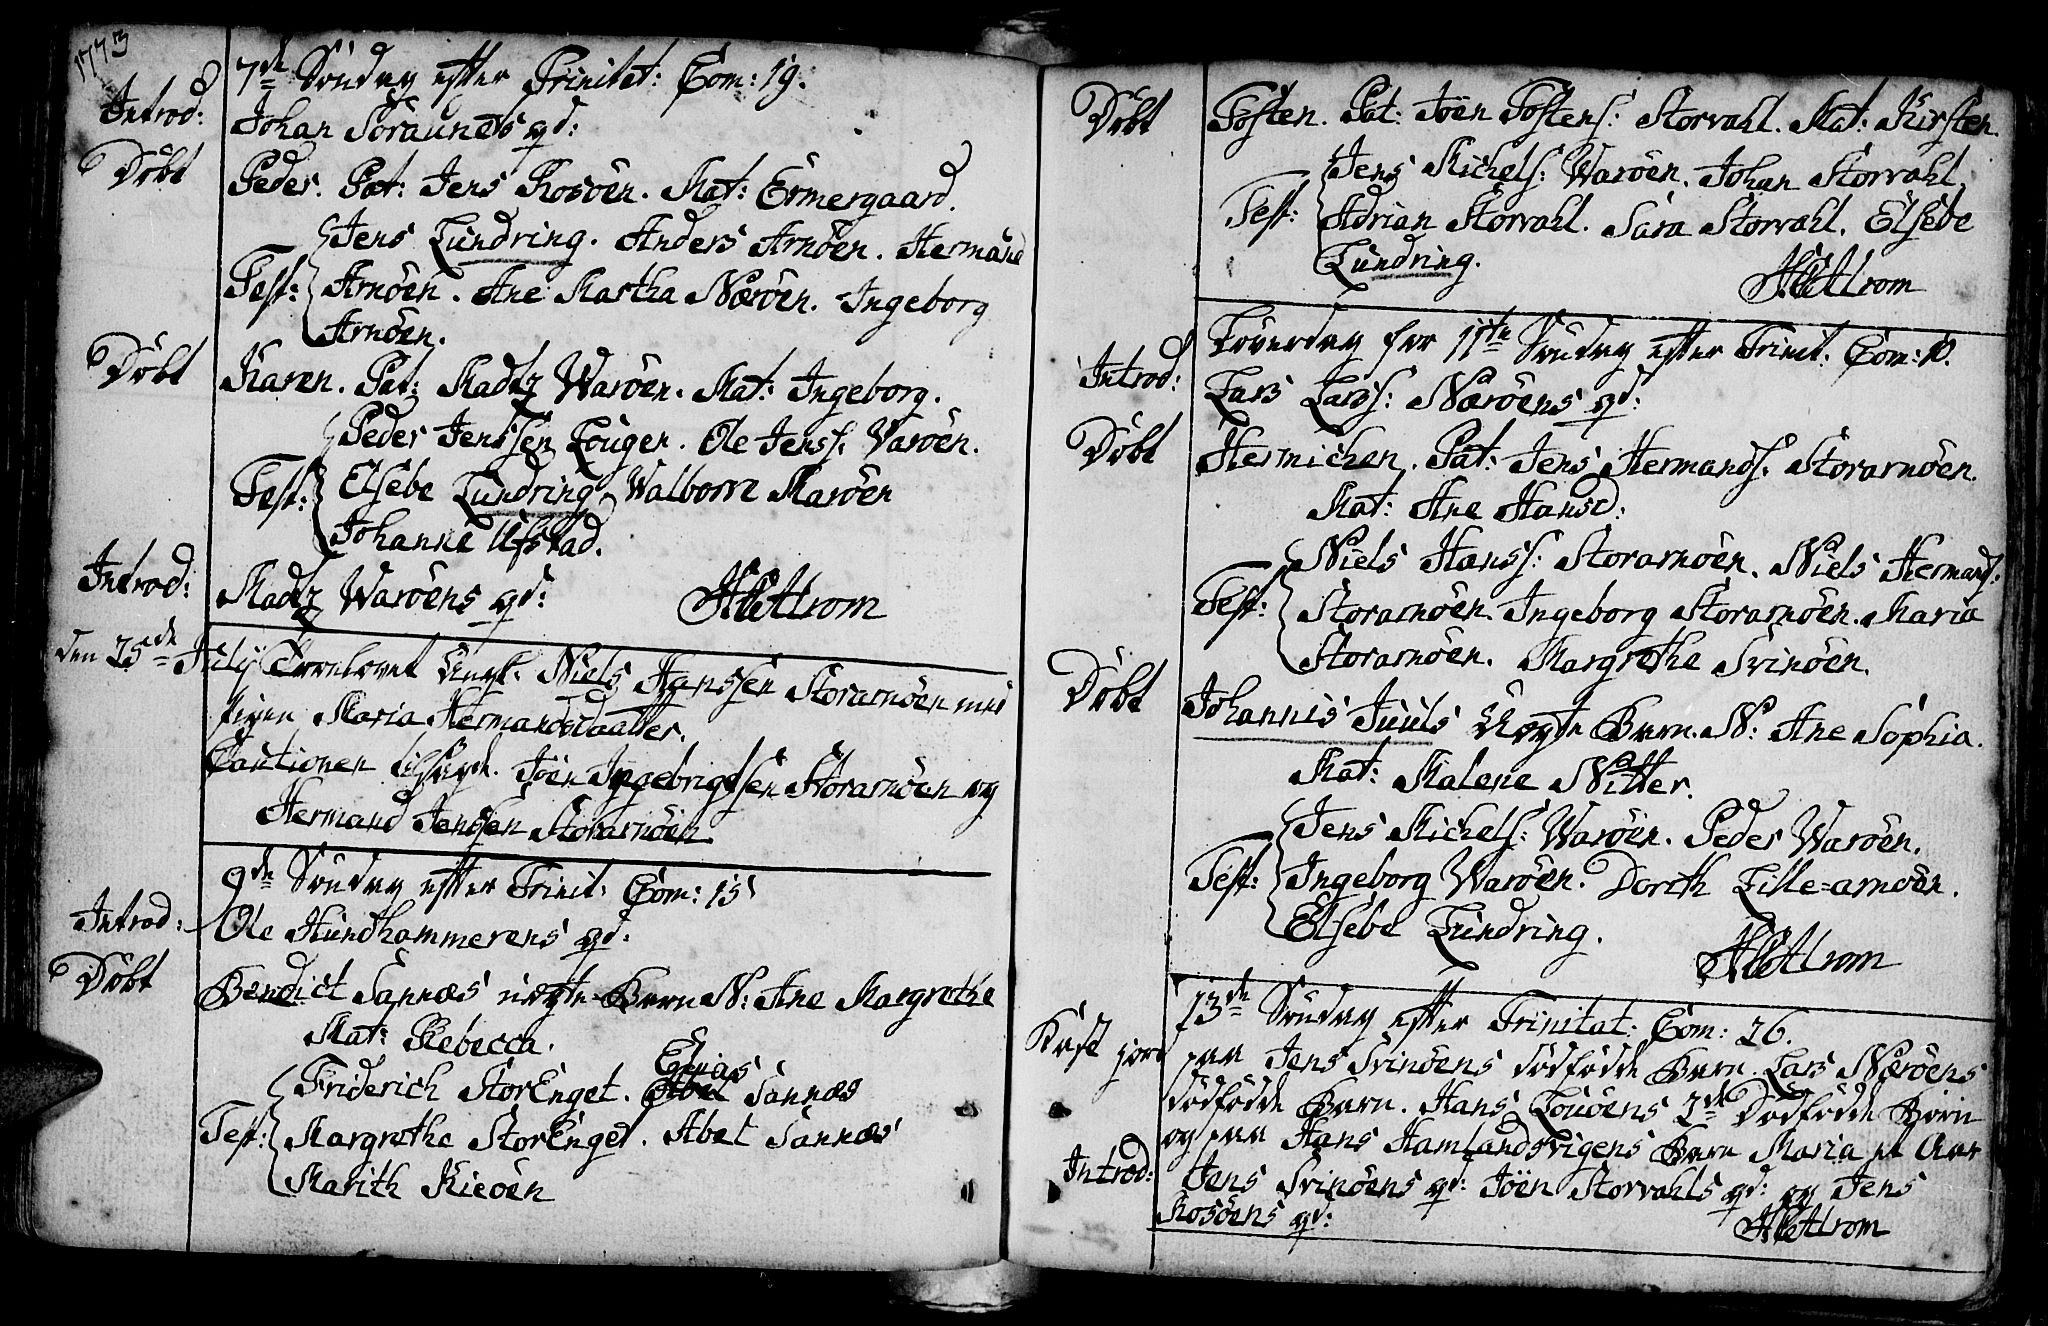 1773
7de Søndag efter Trinitat: Com: 19.
Introd: Johan Soraunets qd:
Døbt Peder. Pat: Jens Rosöen. Mat: Ermergaard.
Jens Lundring. Anders Arnöen. Hermand
Test: Arnöen. Ane Martha Næröen. Ingeborg
Arnöen.
Døbt Karen. Pat: Madtz Waröen. Mat: Ingeborg.
Peder Jenssen Louger. Ole Jenss: Varöen.
Test: Elsebe Lundring. Walborre Maröen
Johanne Ufstad.
Introd: Madtz Waröens qd:
den 25de July Trolovet Ungk: Niels Hanssen Storarnöen med
pigen Maria Hermandsdaatter.
Cautionen tilsagde. Jöen Ingebrigtsen Storarnöen og
Hermand Jenssen Storarnöen
9de Søndag efter Trinit: Com: 15
Introd: Ole Hundhammerens qd:
Døbt Bendict Sannæs uægte Barn N: Ane Margrethe
Mat: Rebecca.
Elias
Friderich StorEnget. Abel Sannæs
Test: Margrethe StorEnget. Abel Sannæs
Marith Kieöen
Døbt Tosten. Pat: Jöen Tostens: Storvahl. Mat: Kirsten.
Jens Michels: Waröen. Johan Storvahl,
Test: Adrian Storvahl. Sara Storvahl. Elsebe
Lundring.
Löverdag for 11te Søndag efter Trinit: Com: 10.
Introd: Lars Lars: Næröens qd:
Døbt Hermichen. Pat: Jens Hermands: Storarnöen.
Mat: Ane Hansd:
Niels Hanss: Storarnöen. Niels Hermands:
Test: Storarnöen. Ingeborg Storarnöen. Maria
Storarnöen. Margrethe Svinöen.
Døbt Johannis Juuls Uægte Barn. N: Ane Sophia.
Mat: Malene Nitter.
Jens Michels: Waröen. Peder Waröen.
Test: Ingeborg Waröen. Dorith Lille=arnöen.
Elsebe Lundring.
13de Søndag efter Trinitat: Com: 26.
Kast jord paa Jens Svinöens dödfödde Barn. Lars Næröens
dödfödde Barn. Hans Louöens 2de Dödfödde Börn
og paa Hans Hamlandsvigens Barn Maria et Aar
Introd: Jens Svinöens qd: Jöen Storvahls qd: og Jens
Rosöens qd: